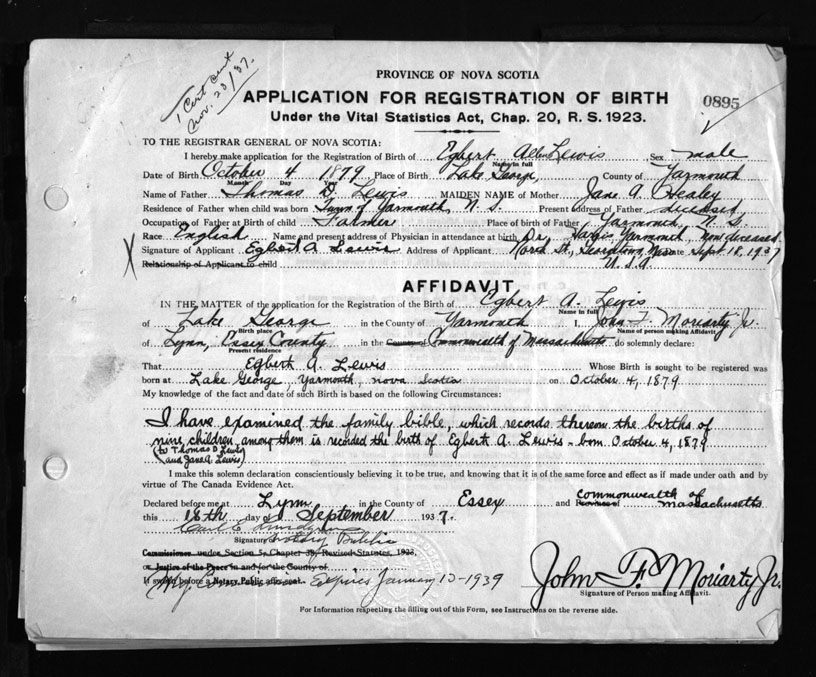 1 Cert sent
Nov. 23/37.
PROVINCE OF NOVA SCOTIA
APPLICATION FOR REGISTRATION OF BIRTH
0895
Under the Vital Statistics Act, Chap. 20, R. S. 1923.
TO THE REGISTRAR GENERAL OF NOVA SCOTIA:
I hereby make application for the Registration of Birth of Egbert Allen Lewis Sex male
Name in full
Date of Birth October 4 1879 Place of Birth Lake George, County of Yarmouth
Month Day Year
Name of Father Thomas D. Lewis MAIDEN NAME of Mother Jane A. Healey
Residence of Father when child was born Town of Yarmouth, N. S. Present address of Father deceased
Occupation of Father at Birth of child Farmer Place of birth of Father Yarmouth, N. S.
Race English Name and present address of Physician in attendance at birth Dr. Yarmouth, now deceased
Signature of Applicant Egbert A. Lewis Address of Applicant North St., Georgetown, Mass Date Sept 18, 1937
Relationship of Applicant to child U. S. A.
AFFIDAVIT
IN THE MATTER of the application for the Registration of the Birth of Egbert A. Lewis
Name in full
of Lake George in the County of Yarmouth I, John F. Moriarty Jr.
Birth place Name of person making Affidavit
of Lynn, Essex County in the County of Commonwealth of Massachusetts do solemnly declare:
Present residence
That Egbert A. Lewis Whose Birth is sought to be registered was
born at Lake George, Yarmouth, Nova Scotia on October 4, 1879
My knowledge of the fact and date of such Birth is based on the following Circumstances:
I have examined the family bible, which records thereon the births of
nine children, among them is recorded the birth of Egbert A. Lewis - born October 4, 1879
(to Thomas D. Lewis
and Jane A. Lewis)
I make this solemn declaration conscientiously believing it to be true, and knowing that it is of the same force and effect as if made under oath and by
virtue of The Canada Evidence Act.
Declared before me at Lynn in the County of Essex and Province of Commonwealth of Massachusetts
this 18th day of September 1937.
Carl C.
Signature Notary Public
Commissioner under Section 5, Chapter 38, Revised Statutes, 1923,
or Justice of the Peace in and for the County of
If sworn before a Notary Public affix seal.
My Com Expires January 13-1939
John F. Moriarty Jr.
Signature of Person making Affidavit.
For Information respecting the filling out of this Form, see Instructions on the reverse side.